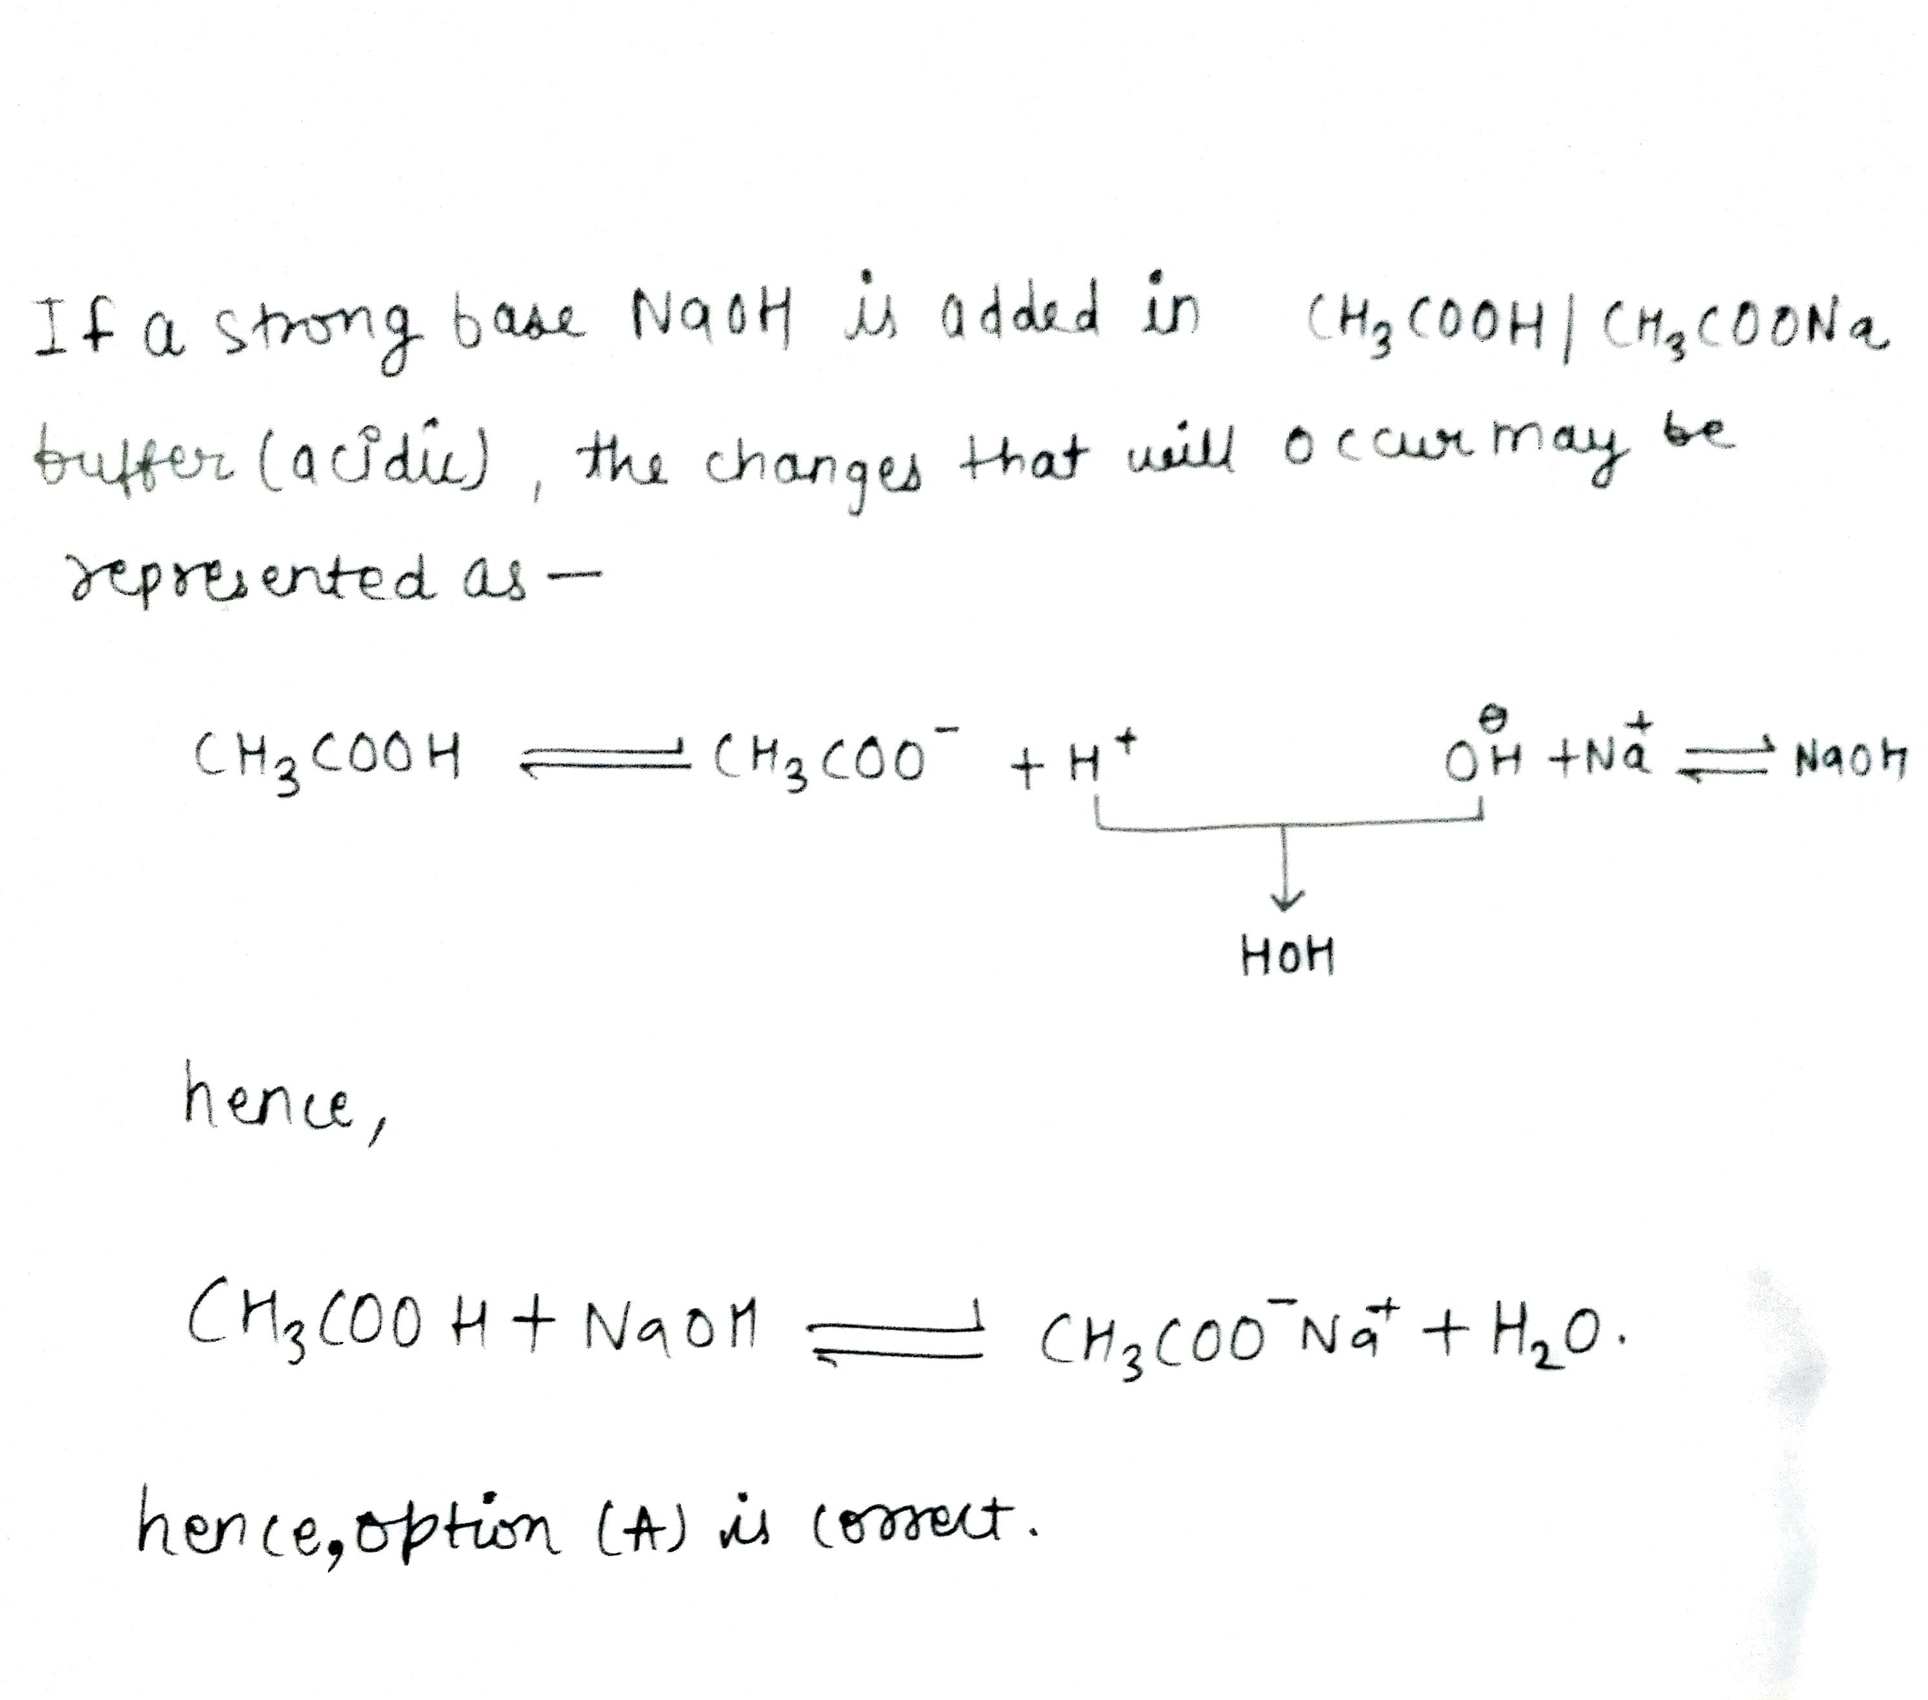 If a strong base NaOH is added in CH₃COOH / CH₃COONa
buffer (acidic), the changes that will occur may be
represented as —
CH₃COOH ⇌ CH₃COO⁻ + H⁺ OH⊖ + Na⁺ ⇌ NaOH
HOH
hence,
CH₃COOH + NaOH ⇌ CH₃COO⁻Na⁺ + H₂O.
hence, option (A) is correct.